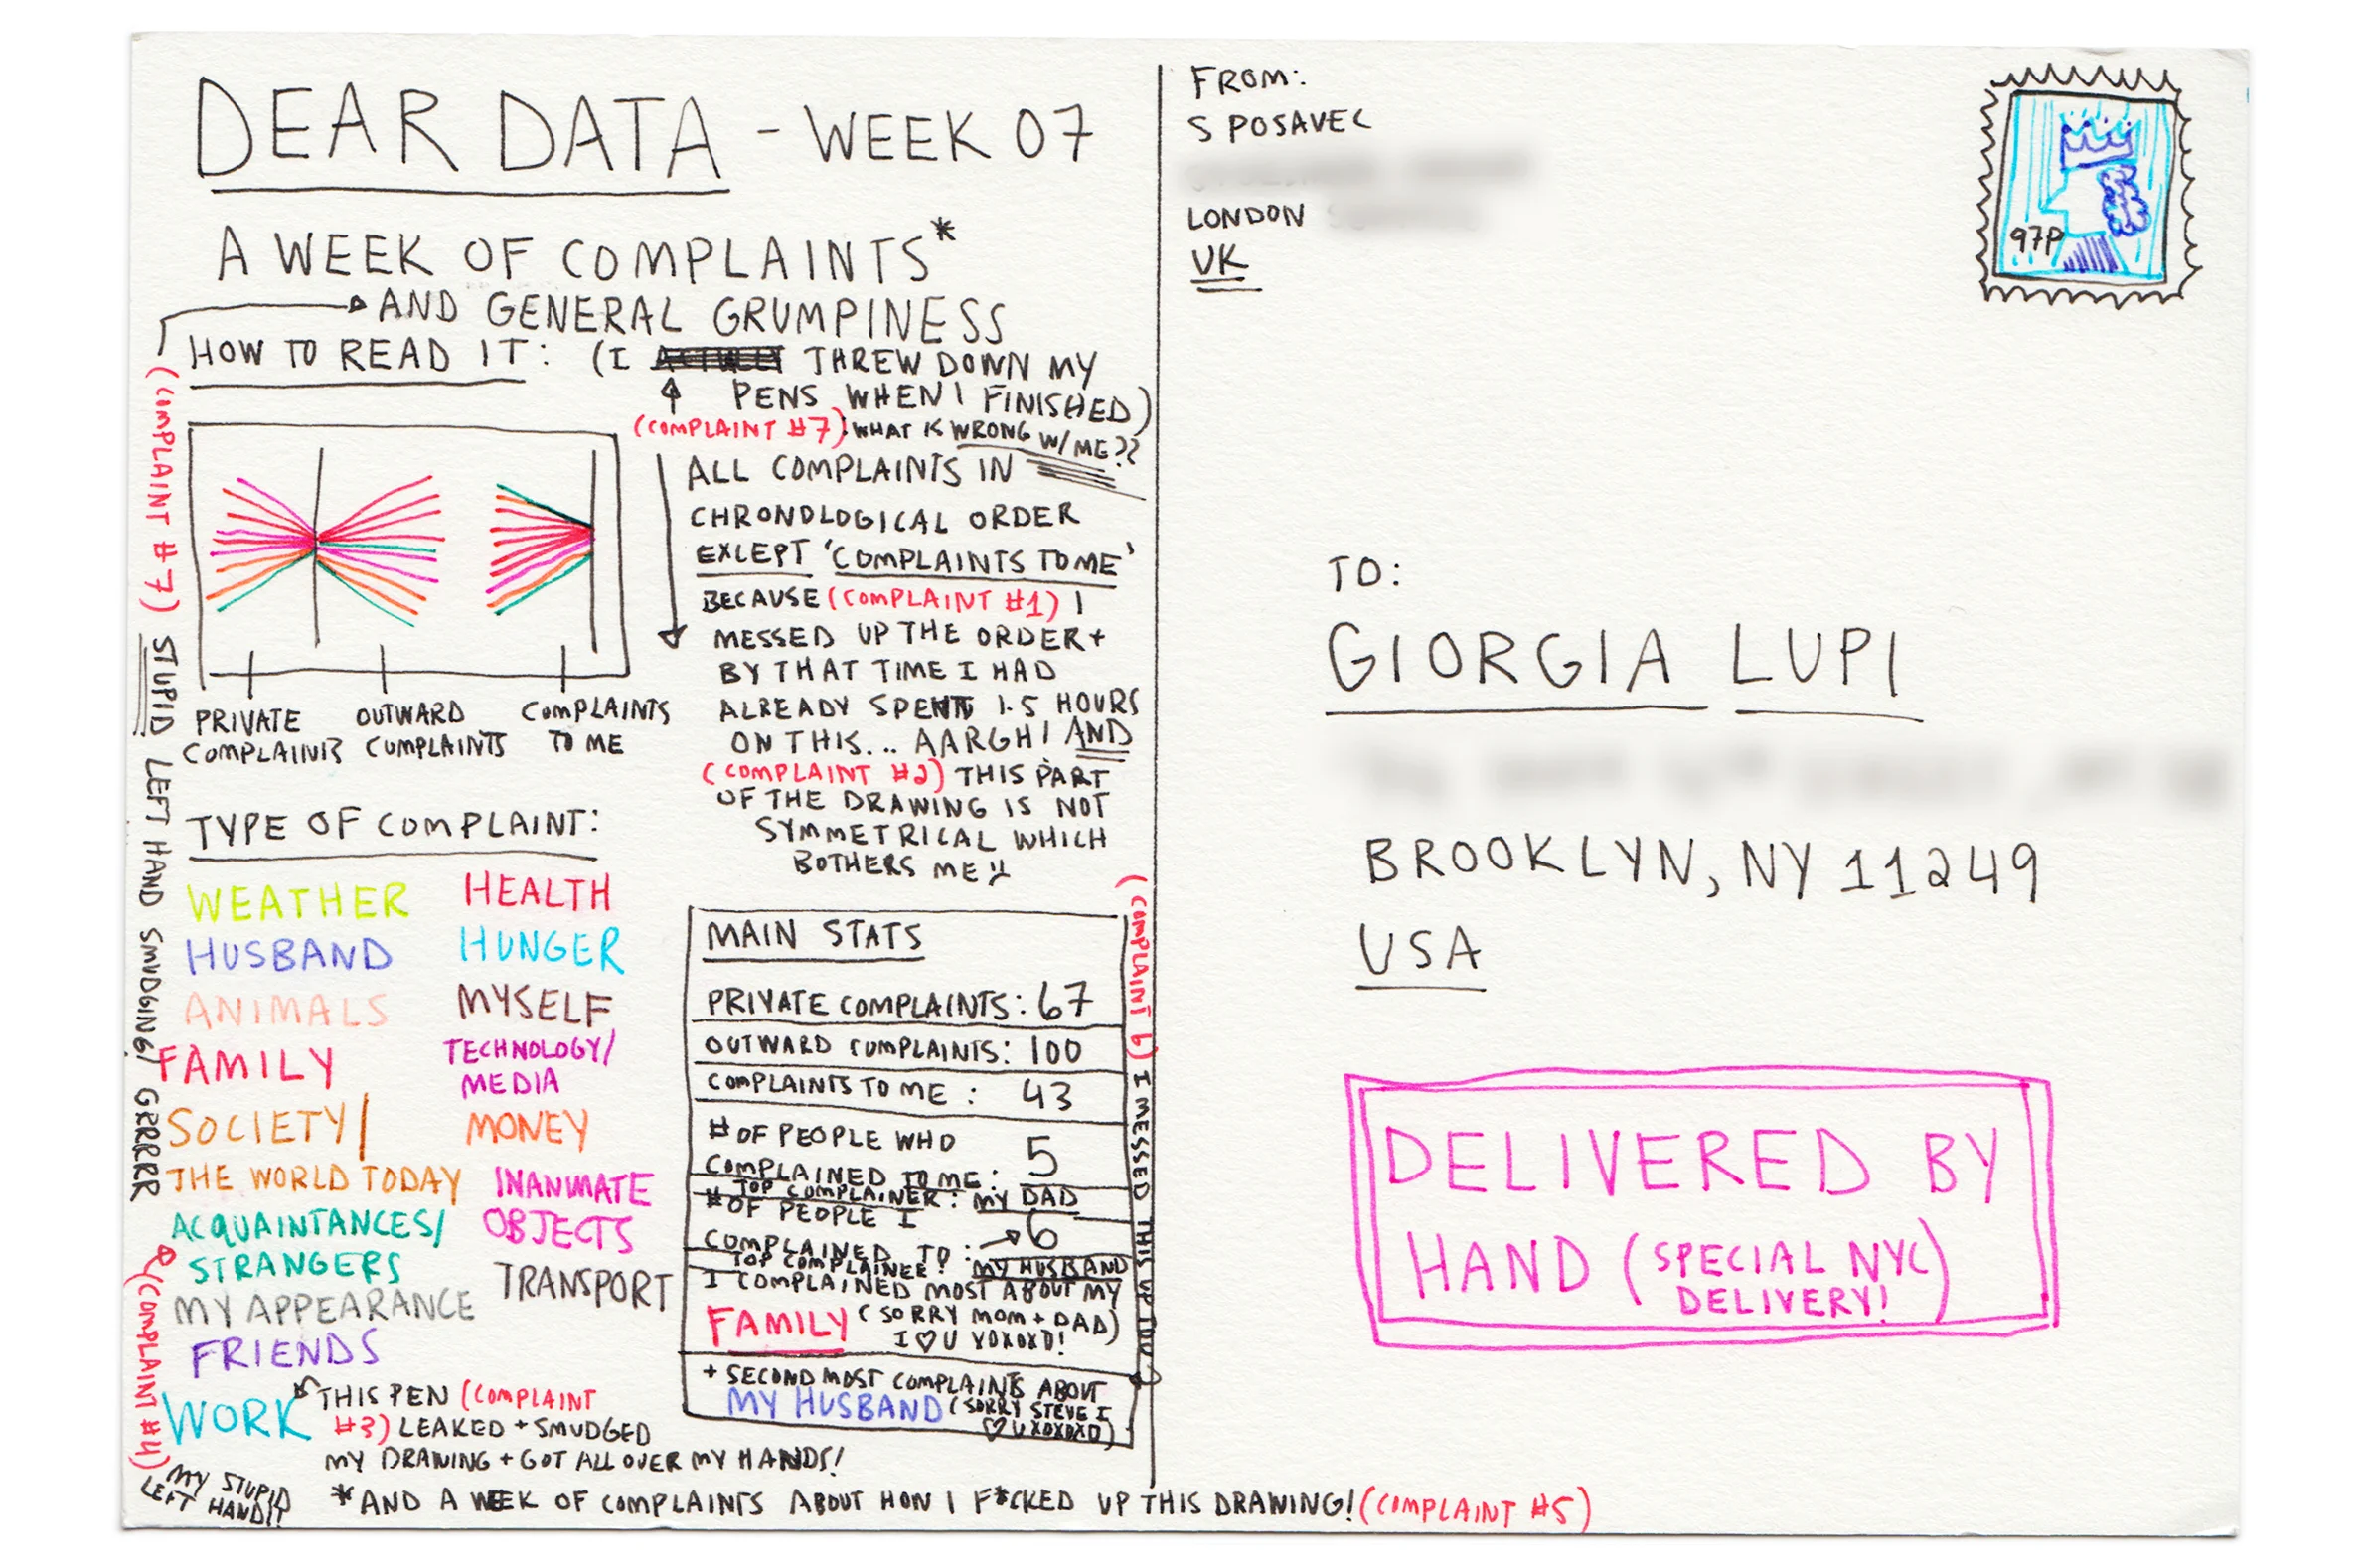 DEAR DATA - WEEK 07
A WEEK OF COMPLAINTS*
AND GENERAL GRUMPINESS
HOW TO READ IT: (I THREW DOWN MY
PENS WHEN I FINISHED)
(COMPLAINT #7): WHAT IS WRONG W/ ME??
ALL COMPLAINTS IN
CHRONOLOGICAL ORDER
EXCEPT 'COMPLAINTS TO ME'
BECAUSE (COMPLAINT #1) I
MESSED UP THE ORDER +
BY THAT TIME I HAD
ALREADY SPENT 1.5 HOURS
ON THIS... AARGH! AND
(COMPLAINT #2) THIS PART
OF THE DRAWING IS NOT
SYMMETRICAL WHICH
BOTHERS ME
PRIVATE
COMPLAINTS
OUTWARD
COMPLAINTS
COMPLAINTS
TO ME
(COMPLAINT #7) STUPID LEFT HAND SMUDGING! GRRRRR
TYPE OF COMPLAINT:
WEATHER
HUSBAND
ANIMALS
FAMILY
SOCIETY/
THE WORLD TODAY
ACQUAINTANCES/
STRANGERS
MY APPEARANCE
FRIENDS
WORK
HEALTH
HUNGER
MYSELF
TECHNOLOGY/
MEDIA
MONEY
INANIMATE
OBJECTS
TRANSPORT
THIS PEN (COMPLAINT
#3) LEAKED + SMUDGED
MY DRAWING + GOT ALL OVER MY HANDS!
(COMPLAINT #4)
MY STUPID
LEFT HAND!!
MAIN STATS
PRIVATE COMPLAINTS: 67
OUTWARD COMPLAINTS: 100
COMPLAINTS TO ME: 43
# OF PEOPLE WHO
COMPLAINED TO ME: 5
TOP COMPLAINER: MY DAD
# OF PEOPLE I
COMPLAINED TO: 6
TOP COMPLAINEE: MY HUSBAND
I COMPLAINED MOST ABOUT MY
FAMILY (SORRY MOM + DAD)
I ♡ U XOXOXO!
+ SECOND MOST COMPLAINTS ABOUT
MY HUSBAND (SORRY STEVE I
♡ U XOXOXO)
(COMPLAINT 6) I MESSED THIS UP TOO
*AND A WEEK OF COMPLAINTS ABOUT HOW I F*CKED UP THIS DRAWING! (COMPLAINT #5)
FROM:
S POSAVEC
LONDON
UK
97P
TO:
GIORGIA LUPI
BROOKLYN, NY 11249
USA
DELIVERED BY
HAND (SPECIAL NYC
DELIVERY!)